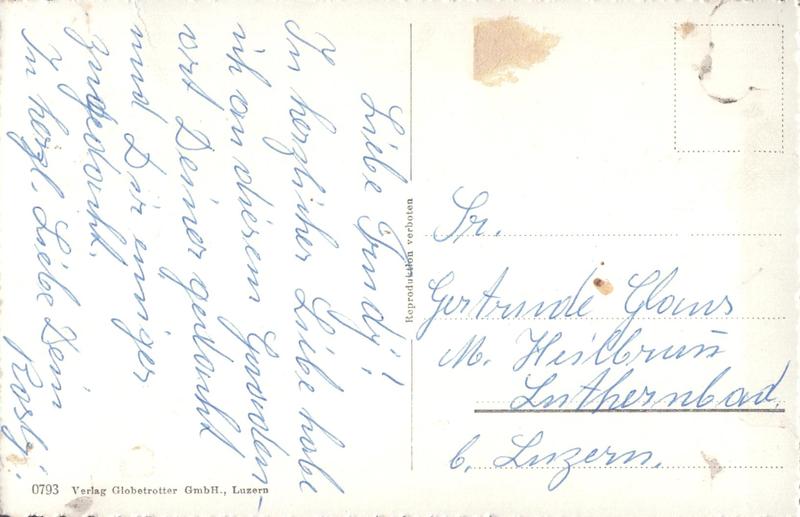 Liebe Trudj!
In herzlicher Liebe habe
ich an diesem Gnaden-
ort Deiner gedacht
und Dir inniger
zugedankt.
In herzl. Liebe Dein
Rosly.
Reproduktion verboten
Sr.
Gertrude Glaus
M. Heilbrunn
Luthernbad
b. Luzern.
0793 Verlag Globetrotter GmbH., Luzern